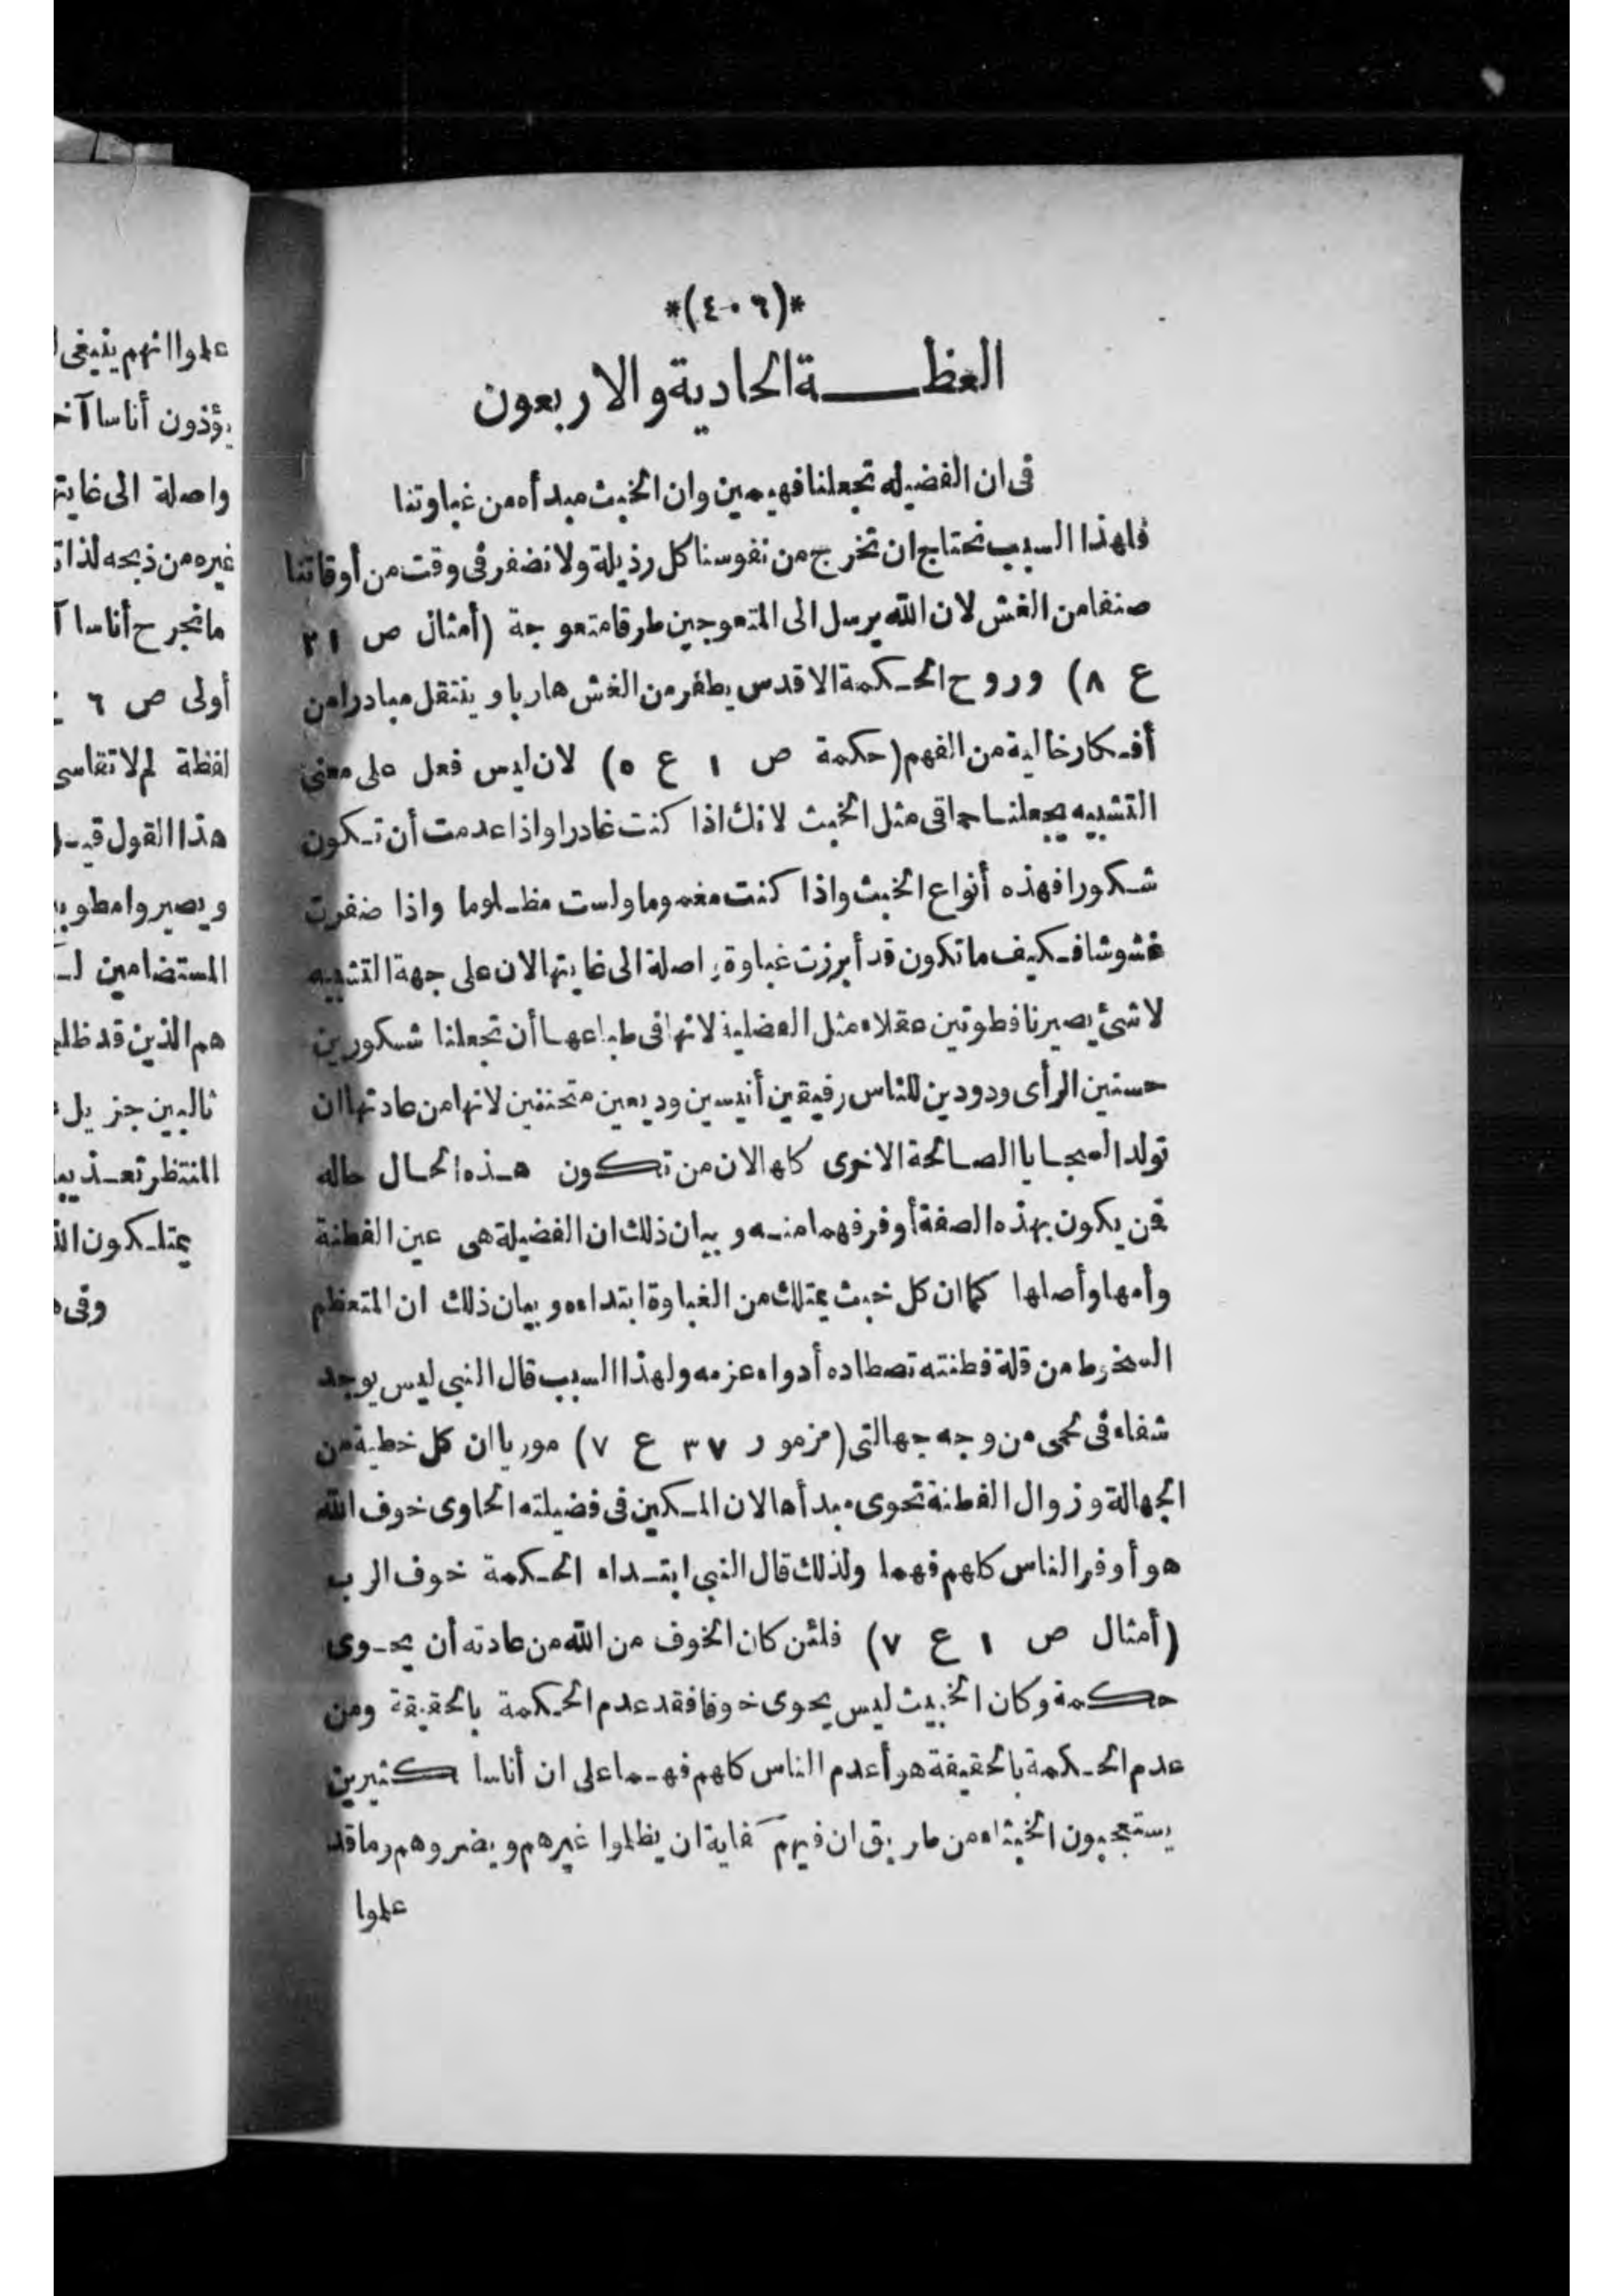 *(٤٠٦)*
العظـــة الحادية والاربعون
فى ان الفضيله تجعلنا فهيمين وان الخبث مبدأه من غباوتنا
فلهذا السبب نحتاج ان تخرج من نفوسنا كل رذيلة ولا نضفر فى وقت من أوقاتنا
صنفا من الغش لان الله يرسل الى المتعوجين طرقا متعوجة (أمثال ص ٢١
ع ٨) وروح الحـكمة الاقدس يطفر من الغش هاربا وينتقل مبادرا من
أفـكار خالية من الفهم (حكمة ص ١ ع ٥) لان ليس فعل على معنى
التشبيه يجعلنا حماقى مثل الخبث لانك اذا كنت غادرا واذا عدمت أن تـكون
شـكورا فهذه أنواع الخبث واذا كنت مغموما ولست مظـلوما واذا ضفرت
غشوشا فـكيف ما تكون قد أبرزت غباوة واصلة الى غايتها لان على جهة التشبيه
لا شئ يصيرنا فطونين عقلاء مثل الفضلية لانها فى طباعهـا أن تجعلنا شـكورين
حسنين الرأى ودودين للناس رفيقين أنيسين وديعين متحننين لانها من عادتها ان
تولد السجـايا الصـالحة الاخرى كلها لان من تكون هـذه الحـال حاله
فمن يكون بهذه الصفة أوفر فهما منـه وبيان ذلك ان الفضيلة هى عين الفطنة
وأمها وأصلها كما ان كل خبث يمتلك من الغباوة ابتداءه وبيان ذلك ان المتعظم
السخوط من قلة فطنته تصطاده أدواء عزمه ولهذا السبب قال النبى ليس يوجد
شفاء فى لحمى من وجه جهالتى (مزمور ٣٧ ع ٧) موريا ان كل خطية من
الجهالة وزوال الفطنة تحوى مبدأها لان المـكين فى فضيلته الحاوى خوف الله
هو أوفر الناس كلهم فهما ولذلك قال النبى ابتـداء الحـكمة خوف الرب
(أمثال ص ١ ع ٧) فلئن كان الخوف من الله من عادته أن يحـوى
حكمة وكان الخبيث ليس يحوى خوفا فقد عدم الحـكمة بالحقيقة ومن
عدم الحـكمة بالحقيقة هو أعدم الناس كلهم فهـما على ان أناسا كثيرين
يستعجبون الخبثاء من طريق ان فيهم كفاية ان يظلموا غيرهم ويضروهم وما قد
علموا
علموا انهم ينبغى
يؤذون أناسا
واصلة الى
غيره من ذبحه
ما تجرح أناسا
أولى ص ٦
لفظة لم لا تقاسى
هذا القول
ويصيروا
المستضامين
هم الذين قد
ثالبين جزيل
المنتظر
يمتلـكون
وفى